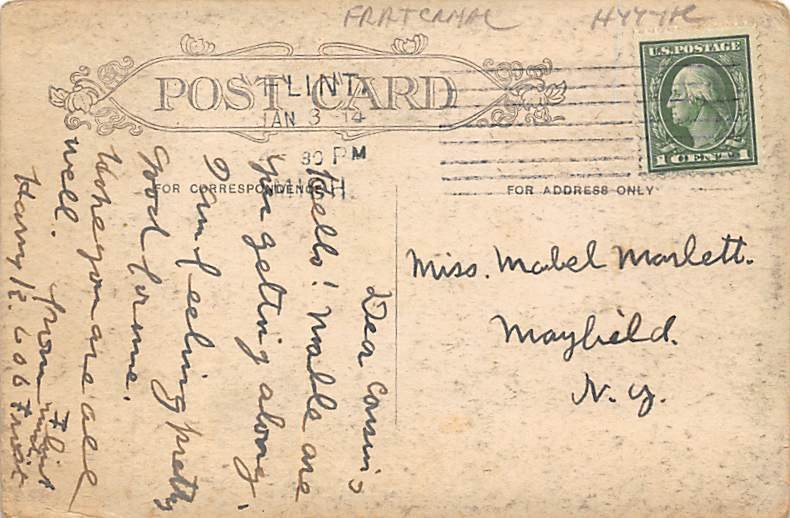 FRATERNAL
POST CARD
FLINT,
JAN 3 14
30 PM
MICH.
U.S. POSTAGE
1 CENT 1
FOR CORRESPONDENCE
FOR ADDRESS ONLY
Dear Cousins
Hello! Mable are
you getting along,
I am feeling pretty
good for me.
Hope you are all
well. from Flint
Harry E. 606
Miss. Mabel Marlett.
Mayfield.
N. Y.